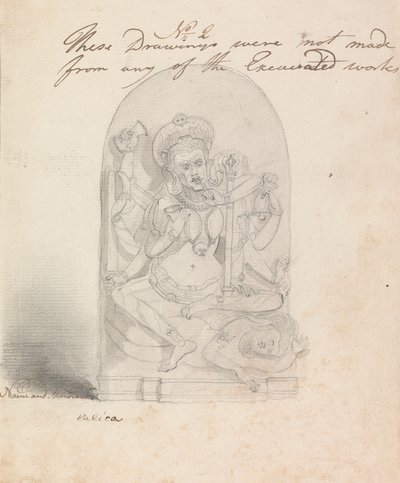 No 2
These Drawings were not made
from any of the Excavated works
Name and
Kalica